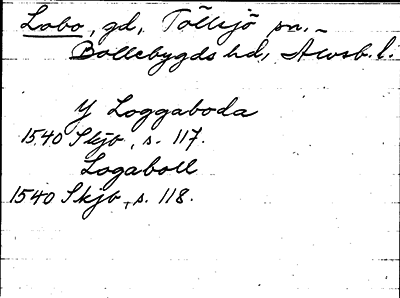 Lobo, gd, Töllsjö sn.
Bollebygds hd, Älvsb. l.
Y Loggaboda
1540 Skjb, s. 117.
Logaboll
1540 Skjb, s. 118.